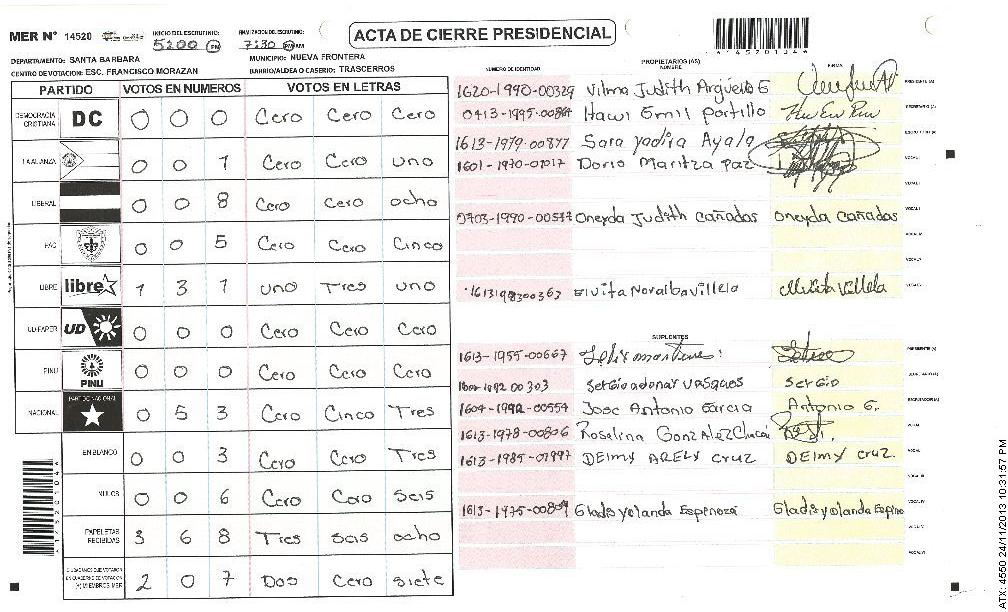 MER N° 14520
INICIO DEL ESCRUTINIO: 5:00 PM
FINALIZACION DEL ESCRUTINIO: 7:30 PM AM
ACTA DE CIERRE PRESIDENCIAL
DEPARTAMENTO: SANTA BARBARA
MUNICIPIO: NUEVA FRONTERA
CENTRO DE VOTACION: ESC. FRANCISCO MORAZAN
BARRIO/ALDEA O CASERIO: TRASCERROS
PARTIDO VOTOS EN NUMEROS VOTOS EN LETRAS
DEMOCRACIA CRISTIANA DC 0 0 0 Cero Cero Cero
LA ALIANZA 0 0 1 Cero Cero uno
LIBERAL 0 0 8 Cero Cero ocho
PAC 0 0 5 Cero Cero Cinco
LIBRE libre 1 3 1 uno Tres uno
UD/FAPER UD 0 0 0 Cero Cero Cero
PINU PINU 0 0 0 Cero Cero Cero
NACIONAL PARTIDO NACIONAL 0 5 3 Cero Cinco Tres
EN BLANCO 0 0 3 Cero Cero Tres
NULOS 0 0 6 Cero Cero Seis
PAPELETAS RECIBIDAS 3 6 8 Tres seis ocho
CIUDADANOS QUE VOTARON EN CUADERNO DE VOTACION (+) MIEMBROS MER 2 0 7 Dos Cero siete
PROPIETARIOS (AS)
NUMERO DE IDENTIDAD NOMBRE FIRMA
1620-1990-00329 Vilma Judith Argueta E PRESIDENTE (A)
0413-1995-00864 Hawi Emil Portillo SECRETARIO (A)
1613-1979-00877 Sara Yadira Ayala ESCRUTADOR (A)
1601-1970-01017 Doris Maritza Paz VOCAL I
VOCAL II
0703-1990-00517 Oneyda Judith Cañadas Oneyda Cañadas VOCAL III
VOCAL IV
VOCAL V
1613198300363 Elvita Noralba Villela Elvita Villela VOCAL VI
SUPLENTES
1613-1955-00667 Felix martinez PRESIDENTE (A)
1992 00303 Sergio adonay vasques Sergio SECRETARIO (A)
1604-1992-00554 Jose Antonio Garcia Antonio G. ESCRUTADOR (A)
1613-1978-00806 Rosalina Gonzalez Chacon VOCAL I
1613-1985-01997 DEIMY ARELY cruz DEIMY cruz. VOCAL II
VOCAL III
1613-1975-00809 Gladis yolanda Espinoza Gladis yolanda Espino VOCAL IV
VOCAL V
VOCAL VI
ATX: 4550 24/11/2013 10:31:57 PM